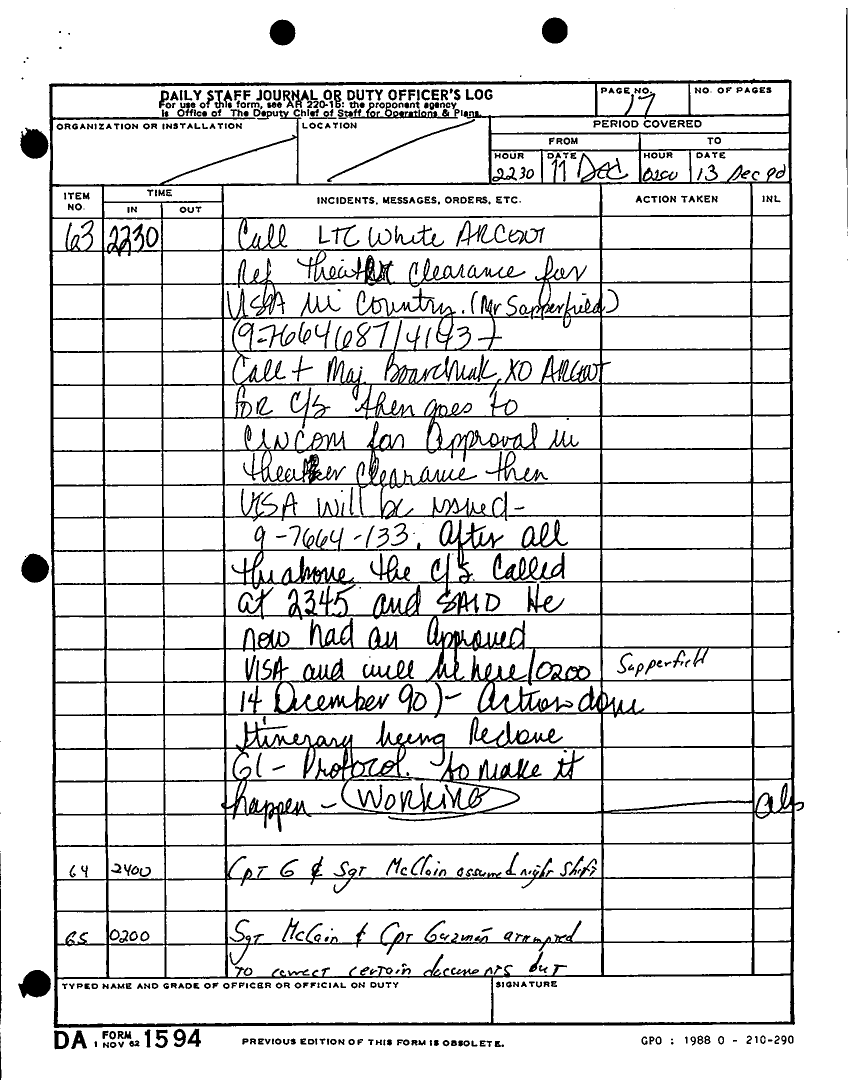 DAILY STAFF JOURNAL OR DUTY OFFICER'S LOG
For use of this form, see AR 220-15: the proponent agency
is Office of The Deputy Chief of Staff for Operations & Plans.
PAGE NO.
17
NO. OF PAGES
ORGANIZATION OR INSTALLATION
LOCATION
PERIOD COVERED
FROM
TO
HOUR
2230
DATE
Dec
HOUR
0200
DATE
13 Dec 90
ITEM NO.
TIME
IN
OUT
INCIDENTS, MESSAGES, ORDERS, ETC.
ACTION TAKEN
INL
63 2230 Call LTC White ARCENT
Ref theater clearance for
VISA in Country. (Mr Sapperfield)
Call + Maj XO ARCENT
for C/S then goes to
CINCOM for Approval in
theater clearance then
VISA will be issued -
9-7664-133. After all
the above the C/S called
at 2345 and SAID He
now had an Approved
VISA and will be here (0200 Sapperfield
14 December 90) - Action done
Itinerary being Redone
G1 - Protocol. to make it
happen - WORKING
64 2400 CPT G & Sgt McClain assumed night shift
65 0200 Sgt McClain & Cpt Guzman attempted
to correct certain documents but
TYPED NAME AND GRADE OF OFFICER OR OFFICIAL ON DUTY
SIGNATURE
DA FORM 1594
1 NOV 62
PREVIOUS EDITION OF THIS FORM IS OBSOLETE.
GPO : 1988 O - 210-290